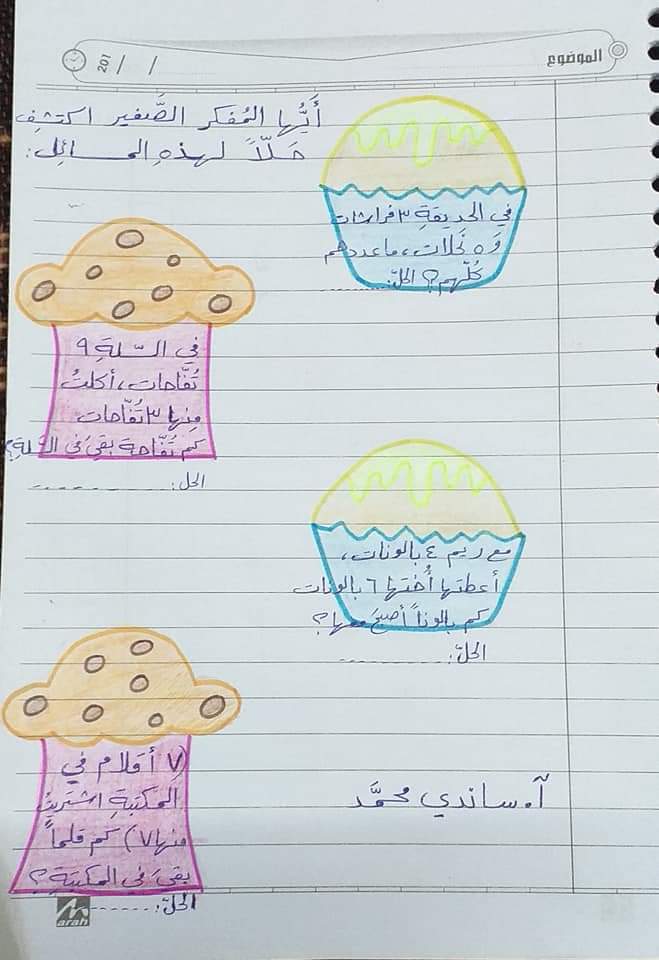 الموضوع
201 / /
أَيُّها المُفكر الصَّغير اكتشِف
حَلّاً لهذهِ المسائِل:
في الحديقةِ ٣ فراشات
وَ ٥ نَحلات، ماعددهم
كُلّهم؟ الحلّ: ............
في السّلةِ ٩
تُفّاحات، أكلتُ
مِنها ٣ تُفّاحات
كم تُفّاحة بقيَ في السّلةِ؟
الحل: ............
مع ريم ٤ بالونات،
أعطتها أُختها ٦ بالونات
كم بالوناً أصبحَ معها؟
الحلّ: ............
(٧ أقلام في
المكتبةِ اشتريتُ
منها ٧) كم قلماً
بقيَ في المكتبةِ؟
الحلّ: ............
آ. ساندي محمَّد
marah